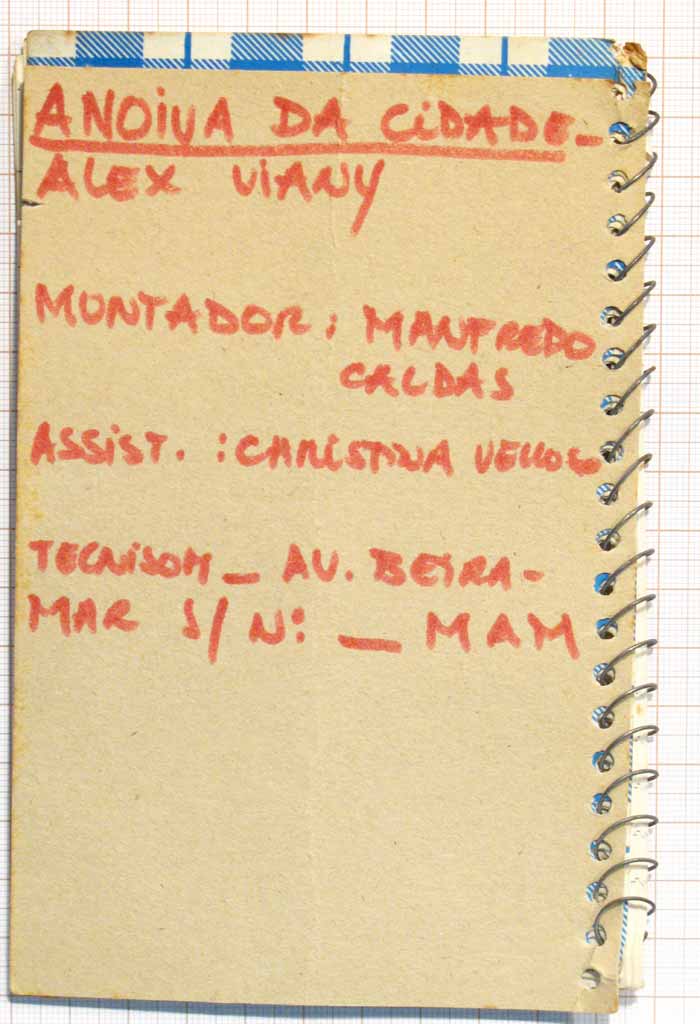 A NOIVA DA CIDADE_
ALEX VIANY
MONTADOR: MANFREDO
CALDAS
ASSIST. : CHRISTINA VELLOSO
TECNISOM _ AV. BEIRA-
MAR S/Nº _ MAM